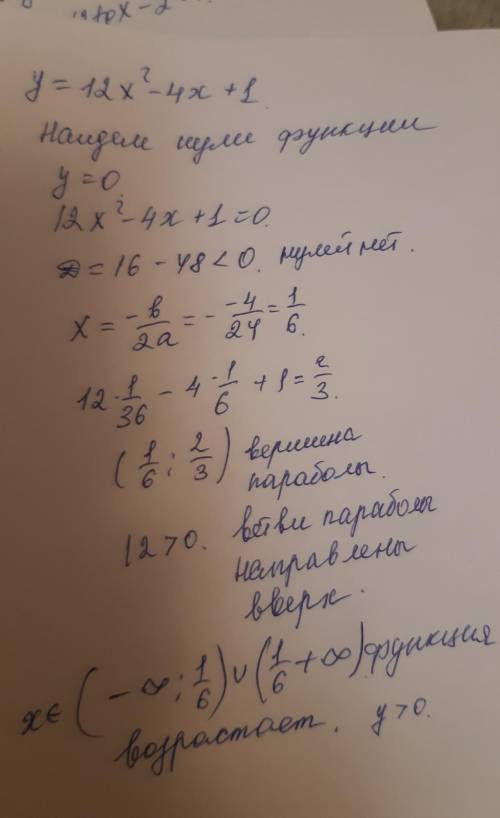 y = 12x² - 4x + 1.
Найдем нули функции
y = 0.
12x² - 4x + 1 = 0.
D = 16 - 48 < 0. нулей нет.
x = -b/2a = - -4/24 = 1/6.
12 · 1/36 - 4 · 1/6 + 1 = 2/3.
(1/6; 2/3) вершина
параболы.
12 > 0. ветви параболы
направлены
вверх.
x ∈ (-∞; 1/6) ∪ (1/6 + ∞) функция
возрастает. y > 0.